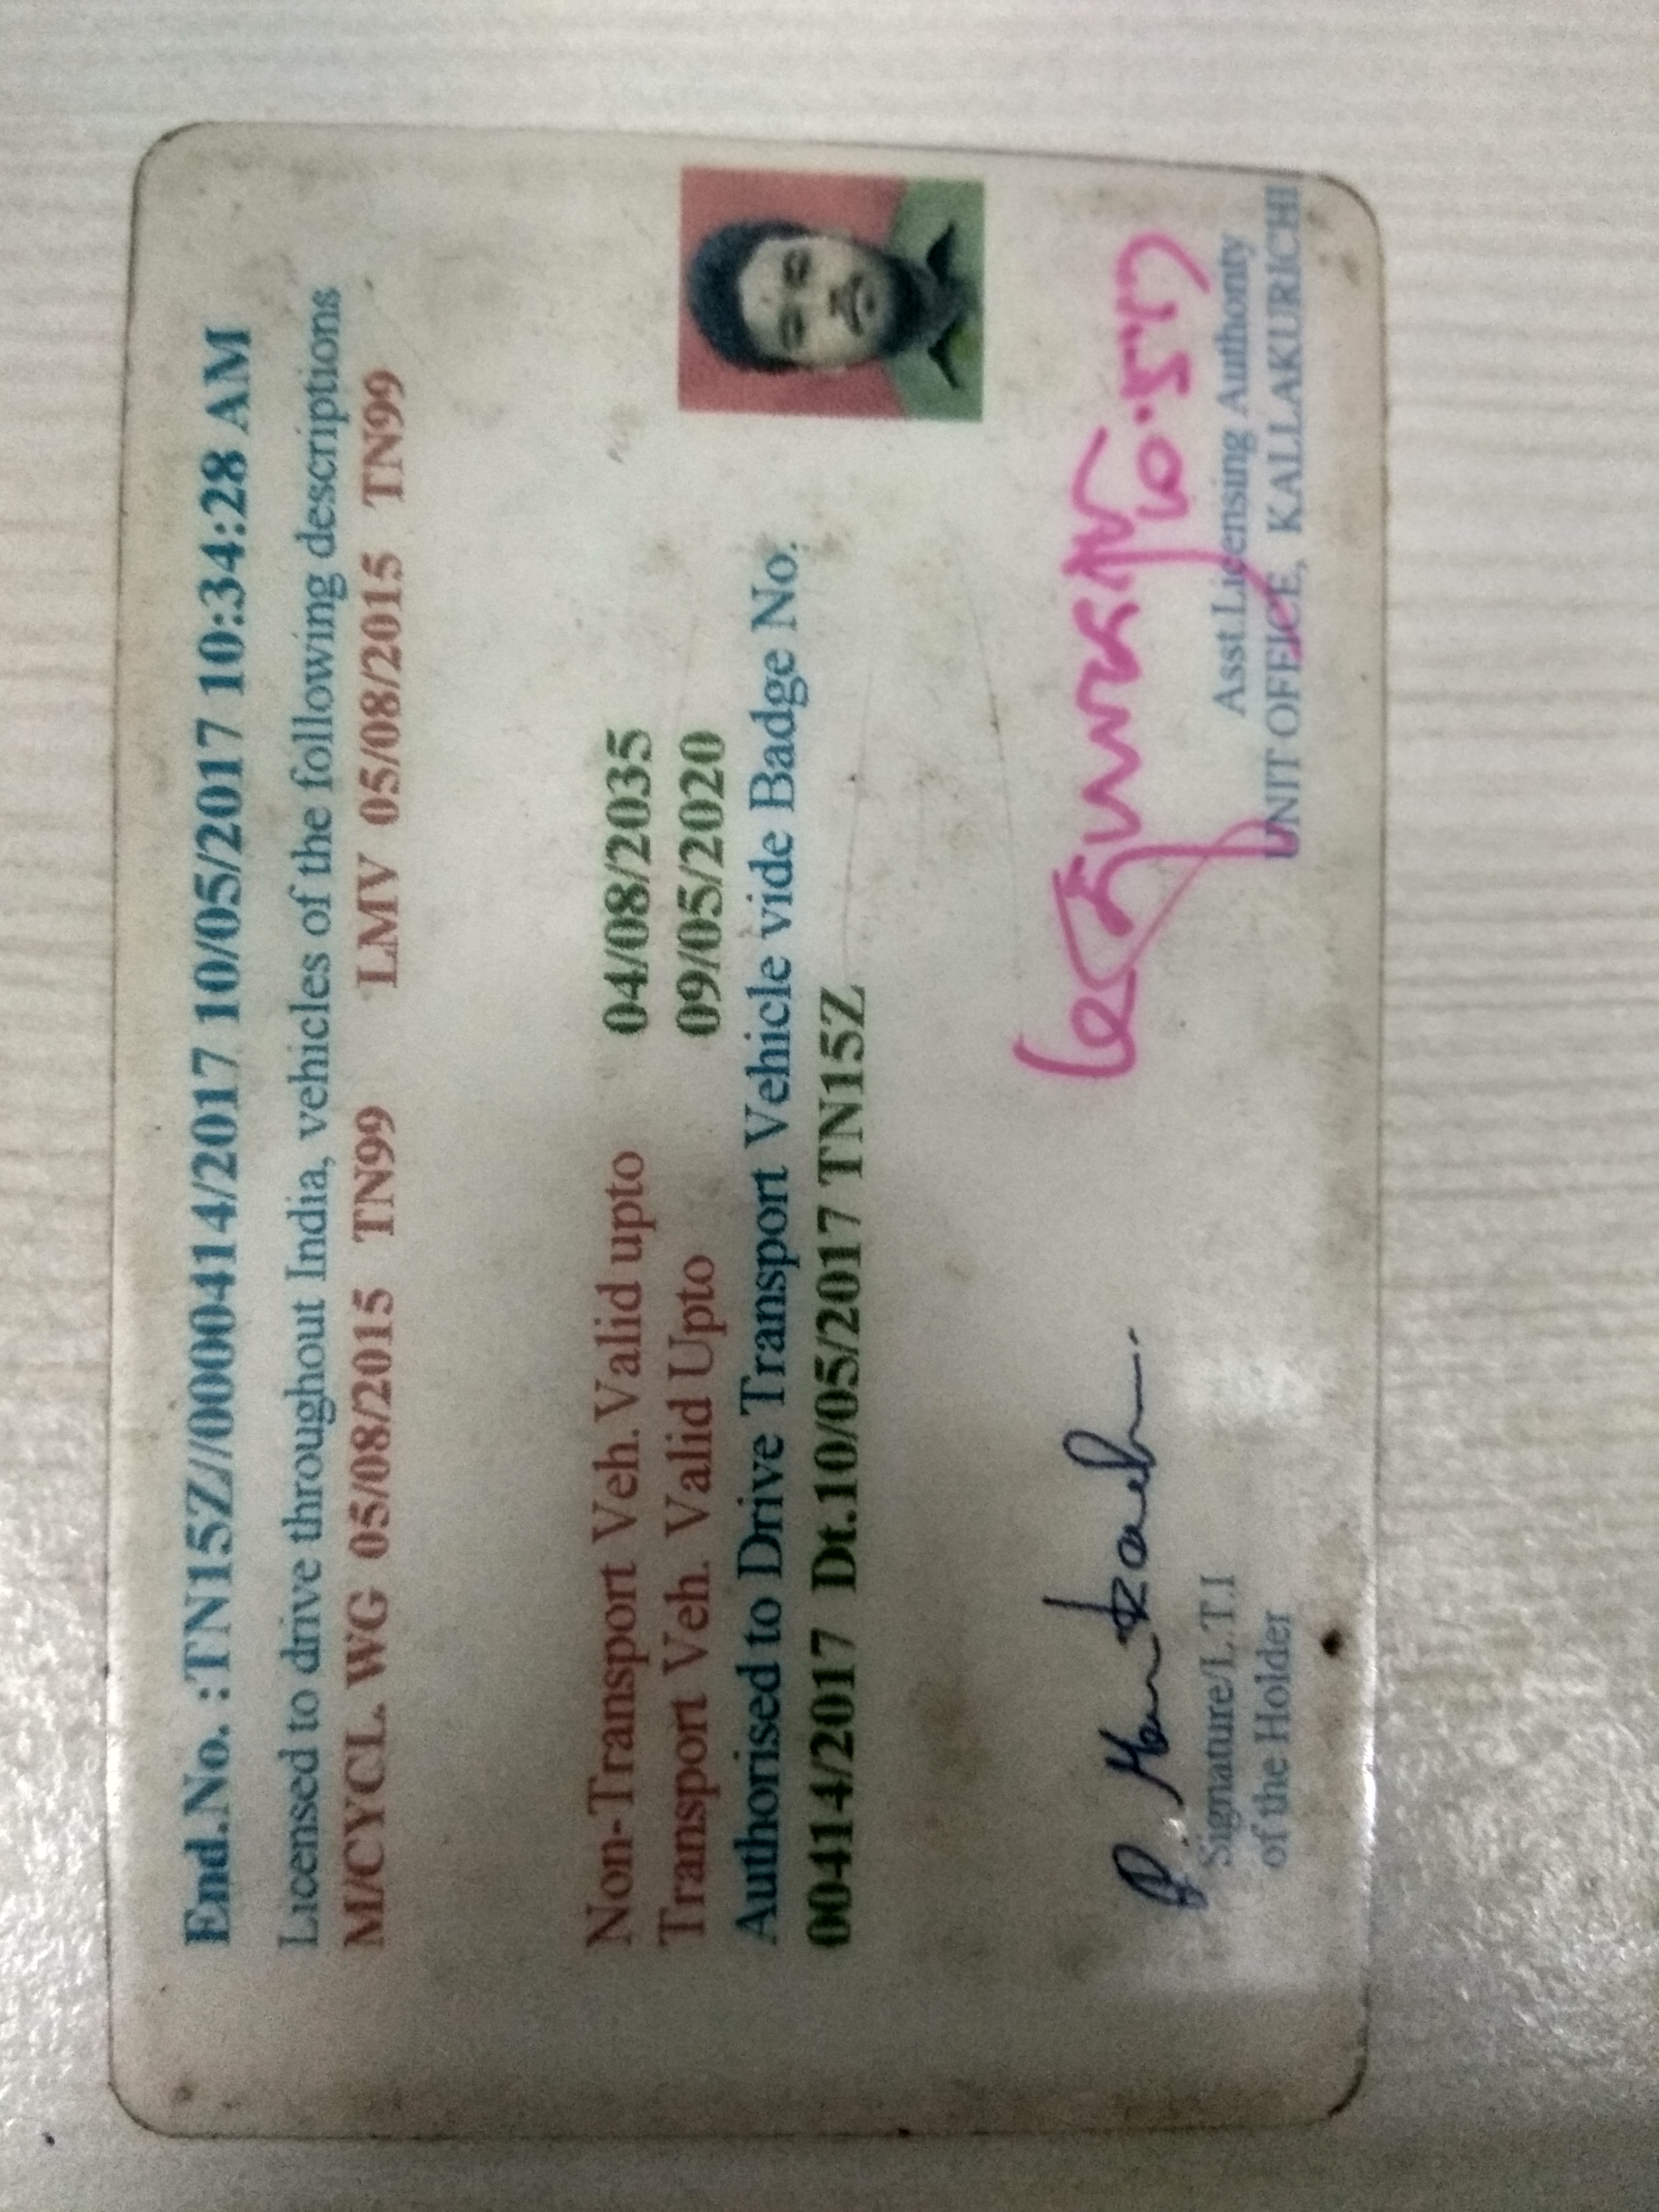 End.No. :TN15Z//0000414/2017 10/05/2017 10:34:28 AM
Licensed to drive throughout India, vehicles of the following descriptions
M/CYCL. WG 05/08/2015 TN99 LMV 05/08/2015 TN99
Non-Transport Veh. Valid upto 04/08/2035
Transport Veh. Valid Upto 09/05/2020
Authorised to Drive Transport Vehicle vide Badge No.
00414/2017 Dt.10/05/2017 TN15Z
Signature/L.T.I
of the Holder
Asst.Licensing Authority
UNIT OFFICE, KALLAKURICHI